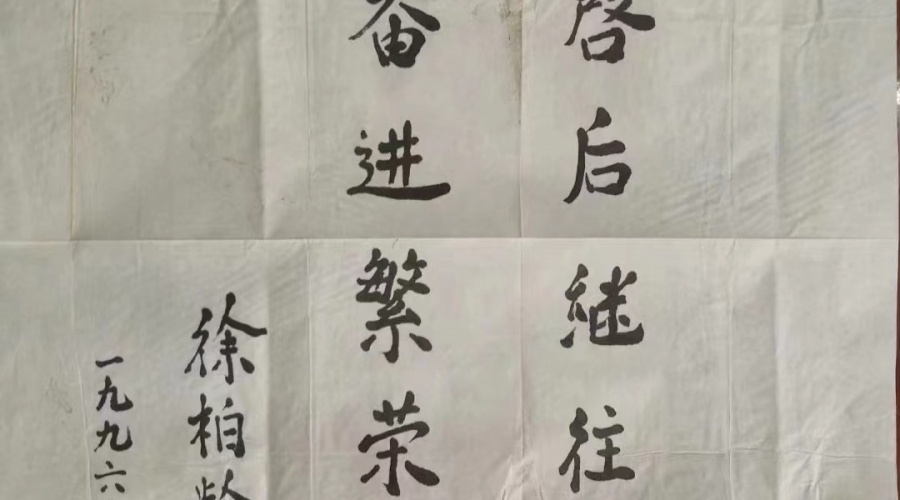 啓后继往
奋进繁荣
徐柏
一九九六